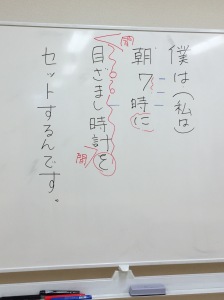 僕は(私は)
朝7時に
目ざまし時計を
セットするんです。